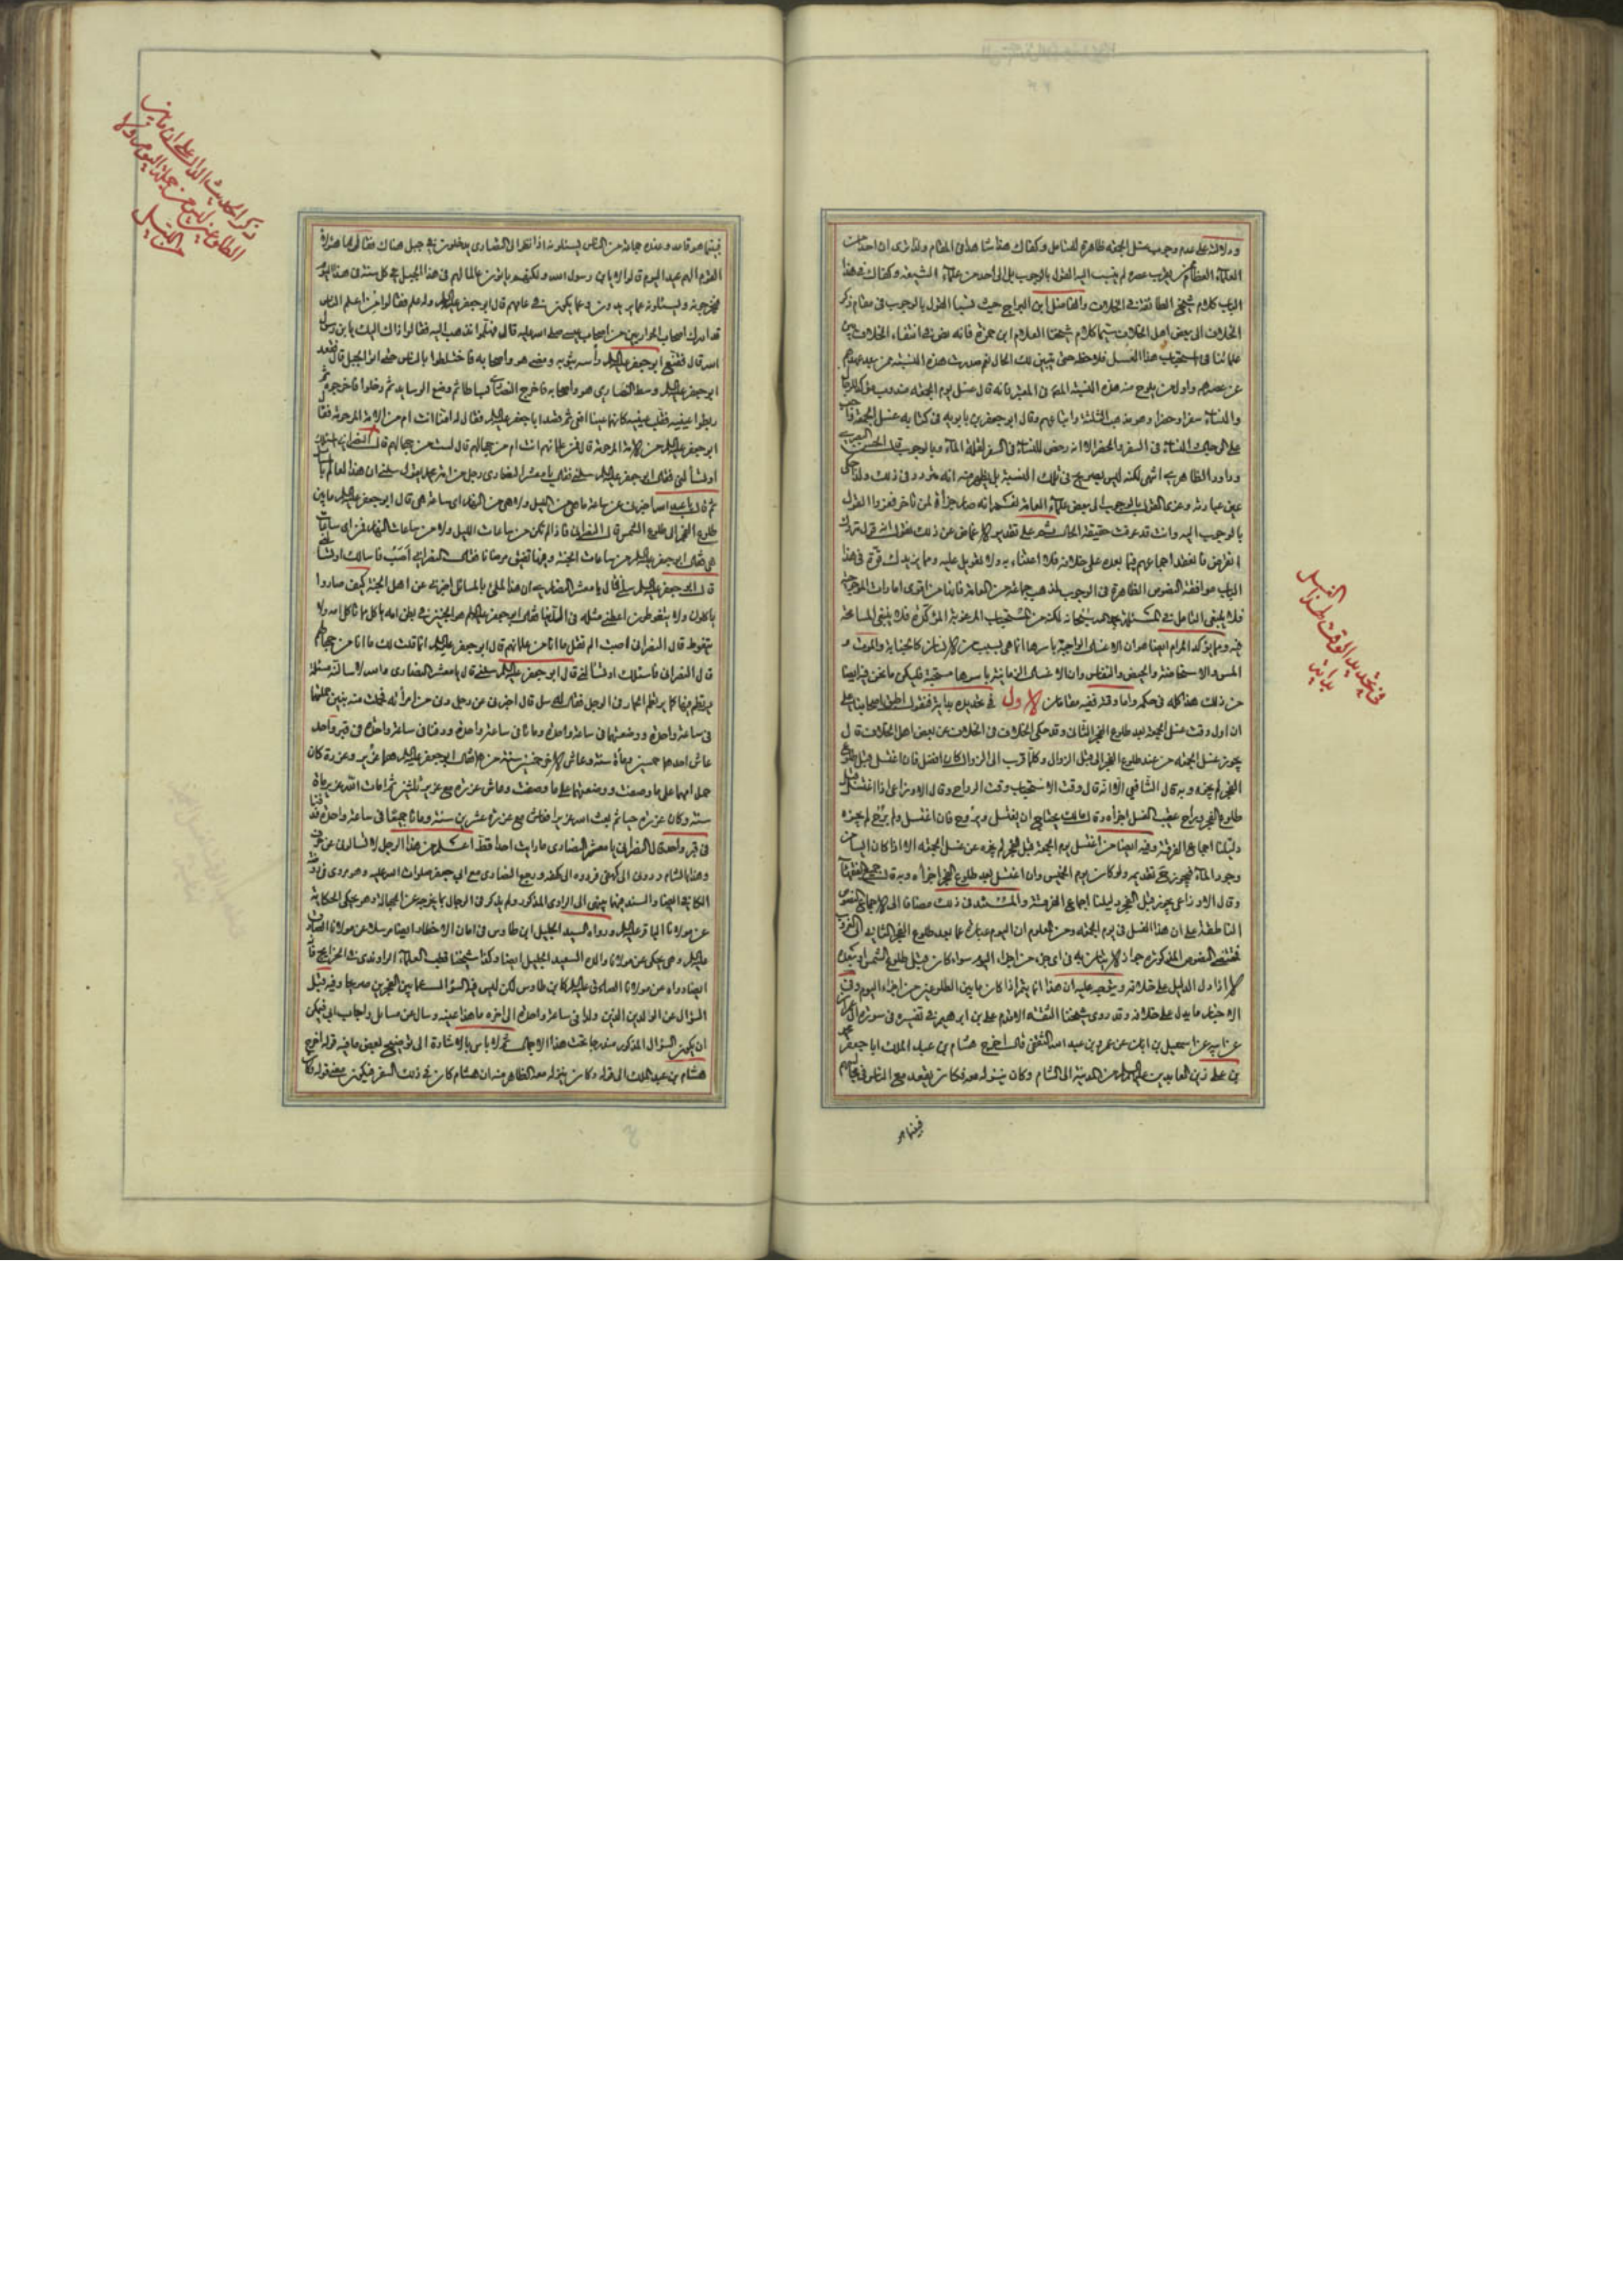 ودلالته على عدم وجوب غسل الجمعة ظاهرة للمتأمل وكفاك هذا شاهدا في المقام ولذا ترى ان احدا من
العلماء العظام ممن يقرب عصره لم ينسب اليه القول بالوجوب بل الى احد من علماء الشيعة وكفاك في هذا
الباب كلام شيخ الطائفة في الخلاف والفاضل ابن البراج حيث نسبا القول بالوجوب في مقام ذكر
الخلاف الى بعض اهل الخلاف سيما كلام شيخنا العلام ابن حمزة فانه نص في انتفاء الخلاف بين
علمائنا في استحباب هذا الغسل فلاحظه حتى يتبين لك الحال نعم صدرت هذه النسبة ممن بعد عهدهم
عن عصرهم واول من يلوح منه هذه النسبة المحقق في المعتبر فانه قال غسل يوم الجمعة مندوب مؤكد للرجال
والنساء سفرا وحضرا وهو مذهب الثلثة واتباعهم وقال ابو جعفر بن بابويه في كتابه غسل الجمعة واجب
على الرجال والنساء في السفر والحضر الا انه رخص للنساء في السفر لقلة الماء وبالوجوب قال الحسن البصري
وداود الظاهري انتهى لكنه ليس بصريح في تلك النسبة بل يظهر منه انه متردد في ذلك ولذا حكى
عين عبارته وعزى القول بالوجوب الى بعض علماء العامة
بالوجوب اليه وانت قد عرفت حقيقة الحال
انقراض فانعقد اجماعهم فيما بعده على خلافه فلا اعتناء به ولا تعويل عليه ومما يزيدك قوة في هذا
الباب موافقة النصوص الظاهرة في الوجوب لمذهب جماعة من العامة فانها من اقوى امارات المرجوحية
فلا ينبغي التأمل في المسئلة بحمد الله سبحانه لكنه من المستحباب المرغوبة المؤكدة فلا ينبغي المسامحة
فيه ومما يؤكد المرام ايضا هو ان الاغسال الواجبة باسرها انما هي بسبب من الاسباب كالجنابة والموت و
المس والاستحاضة والحيض والنفاس وان الاغسال الزمانية باسرها مستحبة فليكن ما نحن فيه ايضا
من ذلك هذا كله في حكمه واما وقته ففيه مقامان الاول في تحديد بدايته فنقول اطبق اصحابنا على
ان اول وقت غسل الجمعة بعد طلوع الفجر الثاني وقد حكى الخلاف في الخلاف عن بعض اهل الخلاف قال
يجوز غسل الجمعة من عند طلوع الفجر الى قبل الزوال وكلما قرب الى الزوال كان افضل فان اغتسل قبل طلوع
الفجر لم يجزه وبه قال الشافعي الا انه قال وقت الاستحباب وقت الرواح وقال الاوزاعي اذا اغتسل قبل
طلوع الفجر وراح عقيب الغسل اجزأه وقال مالك يحتاج ان يغتسل ويروح فان اغتسل ولم يرح لم يجزه
دليلنا اجماع الفرقة وفيه ايضا من اغتسل يوم الجمعة قبل الفجر لم يجزه عن غسل الجمعة الا اذا كان آيسا من
وجود الماء فيجوز ح تقديمه ولو كان يوم الخميس وان اغتسل بعد طلوع الفجر اجزأه وبه قال جميع الفقهاء
وقال الاوزاعي يجوز قبل الفجر دليلنا اجماع الفرقة والمستند في ذلك مضافا الى الاجماع النصوص
الناطقة على ان هذا الغسل في يوم الجمعة ومن المعلوم ان اليوم عبارة عما بعد طلوع الفجر الثاني الى الغروب
فمقتضى النصوص المذكورة جواز الاتيان به في اي جزء من اجزاء اليوم سواء كان قبل طلوع الشمس او بعده
الا اذا دل الدليل على خلافه ويتوجه عليه ان هذا انما يتم اذا كان ما بين الطلوعين من اجزاء اليوم وفي
الاخبار ما يدل على خلافه وقد روى شيخنا الثقة الاقدم علي بن ابراهيم في تفسيره في سورة آل عمران
عن ابيه عن اسمعيل بن ابان عن عمرو بن عبد الله الثقفي قال اخرج هشام بن عبد الملك ابا جعفر محمد
بن علي زين العابدين عليهما السلام من المدينة الى الشام وكان ينزله معه فكان يقعد مع الناس في مجالسهم
فبينما هو
في تحديد الوقت لهذا الغسل
بداية
فبينما هو قاعد وعنده جماعة من الناس يسئلونه اذا نظر الى النصارى يدخلون في جبل هناك فقال ما لهؤلاء
القوم الهم عيد اليوم قالوا لا يابن رسول الله ولكنهم يأتون عالما لهم في هذا الجبل في كل سنة في هذا اليوم
فيخرجونه ويسئلونه عما يريدون وعما يكون في عامهم قال ابو جعفر عليه السلام وله علم فقالوا من اعلم الناس
قد ادرك اصحاب الحواريين من اصحاب عيسى صلى الله عليه قال فهلموا نذهب اليه فقالوا ذاك اليك يابن رسول
الله قال فقنع ابو جعفر عليه السلام رأسه بثوبه ومضى هو واصحابه فاختلطوا بالناس حتى اتوا الجبل قال فقعد
ابو جعفر عليه السلام وسط النصارى هو واصحابه فاخرج النصارى بساطا ثم وضع الوسايد ثم دخلوا فاخرجوه ثم
ربطوا عينيه فقلب عينيه كانهما عينا افعى ثم قصد ابا جعفر عليه السلام فقال له امنا انت ام من الامة المرحومة فقال
ابو جعفر عليه السلام من الامة المرحومة قال فمن علمائهم انت ام من جهالهم قال لست من جهالهم قال النصراني اسئلك
او تسألني فقال ابو جعفر عليه السلام سلني فقال يا معشر النصارى رجل من امة محمد يقول سلني ان هذا لعالم
ثم قال يا عبد الله اخبرني عن ساعة ما هي من الليل ولا هي من النهار اي ساعة هي قال ابو جعفر عليه السلام ما بين
طلوع الفجر الى طلوع الشمس قال النصراني فاذا لم تكن من ساعات الليل ولا من ساعات النهار فمن اي ساعات
هي فقال ابو جعفر عليه السلام من ساعات الجنة وفيها تفيق مرضانا فقال النصراني اصبت فاسألك او تسألني
قال ابو جعفر عليه السلام سلني قال يا معشر النصارى ان هذا لملئ بالمسائل اخبرني عن اهل الجنة كيف صاروا
ياكلون ولا يتغوطون اعطني مثله في الدنيا فقال ابو جعفر عليه السلام هو الجنين في بطن امه ياكل مما تاكل امه ولا
يتغوط قال النصراني اصبت الم تقل ما انا من علمائهم قال ابو جعفر عليه السلام انما قلت لك ما انا من جهالهم
قال النصراني فاسئلك او تسألني قال ابو جعفر عليه السلام سلني قال يا معشر النصارى والله لاسألنه مسئلة
يرتطم فيها كما يرتطم الحمار في الوحل فقال له سل قال اخبرني عن رجل دنى من امرأته فحملت منه بابنين حملتهما
في ساعة واحدة ووضعتهما في ساعة واحدة وماتا في ساعة واحدة ودفنا في ساعة واحدة في قبر واحد
عاش احدهما خمسين ومأة سنة وعاش الاخر خمسين سنة من هما فقال ابو جعفر عليه السلام هما عزير وعزرة كان
حمل امهما على ما وصفت ووضعتهما على ما وصفت وعاش عزرة مع عزير ثلثين ثم امات الله عزير مأة
سنة وكان عزرة حيا ثم بعث الله عزيرا فعاش مع عزرة عشرين سنة وماتا جميعا في ساعة واحدة فدفنا
في قبر واحد قال النصراني يا معشر النصارى ما رايت احدا قط اعلم من هذا الرجل لا تسألوني عن حرف
وهذا بالشام ردوني الى كهفي فردوه الى كهفه ورجع النصارى مع ابي جعفر صلوات الله عليه وهو مروي في روضة
الكافي ايضا والسند فيها ينتهي الى الراوي المذكور ولم يذكر في الرجال ما يخرجه عن الجهالة وهو يحكي الحكاية
عن مولانا الباقر عليه السلام ورواه السيد الجليل ابن طاوس في امان الاخطار ايضا مرسلا عن مولانا الصادق
عليه السلام وهي يحكي عن مولانا والده السعيد الجليل ايضا وكذا شيخنا قطب العلماء الراوندي في الخرايج فانه
ايضا رواه عن مولانا الصادق عليه السلام كابن طاوس لكن ليس فيه السؤال عما بين الفجرين صريحا وفيه قبل
السؤال عن الوالدين الذين ولدا في ساعة واحدة الى اخره ما هذا عينه وسأل عن مسايل واجاب ابي فيمكن
ان يكون السؤال المذكور مندرجا تحت هذا الاجمال ثم لا باس بالاشارة الى توضيح لبعض ما فيه قوله اخرج
هشام بن عبد الملك الى قوله وكان ينزله معه الظاهر منه ان هشام كان في ذلك السفر فيكون معنى قوله وكان
ذكر الحديث الدال على ان ما بين
الطلوعين ليس من جملة اليوم ولا
من الليل